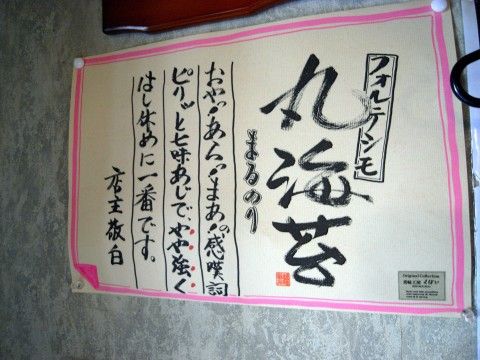 フォルテシモ
丸海苔
まるのり
おや!あら!まあ!の感嘆詞
ピリッと七味あじで、やや強く
はし休めに一番です。
店主敬白
Original Collection